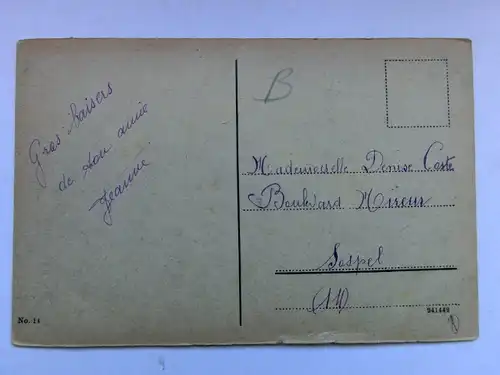 Gros baisers
de ton amie
Jeanne
B
Mademoiselle Denise Coste
Boulevard
Sospel
No. 14
941449